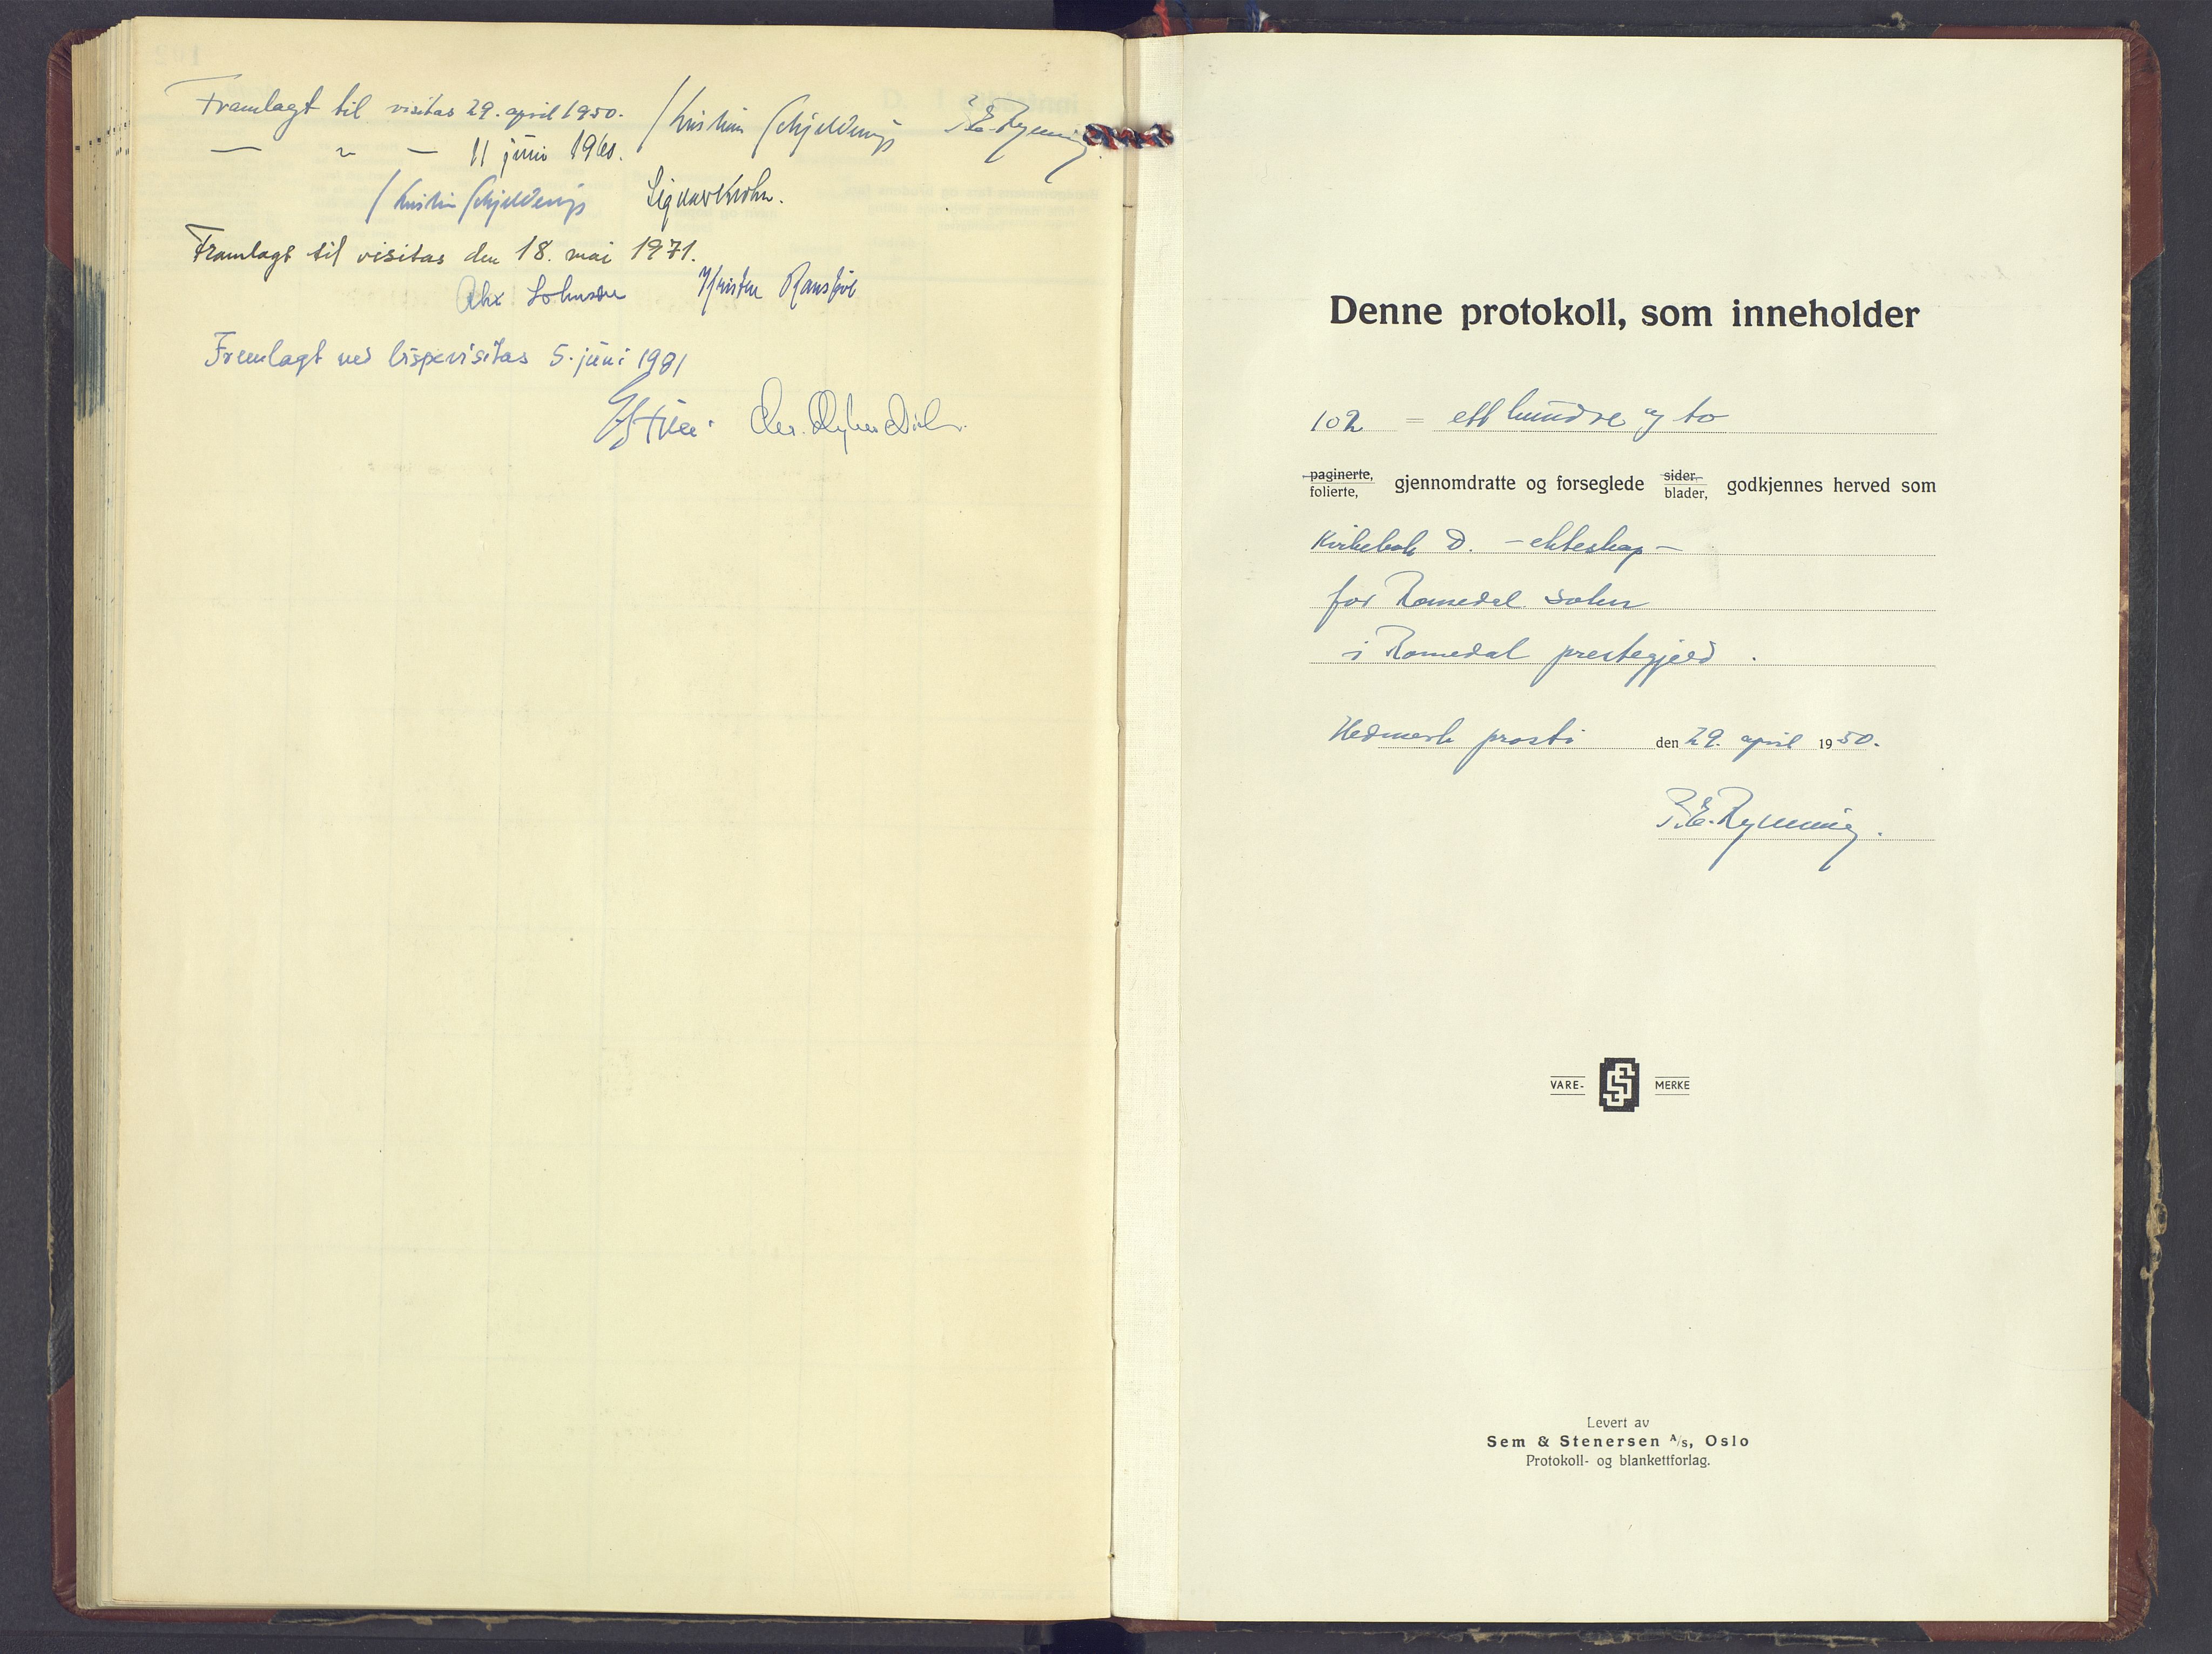 Framlagt til visitas 29. april 1950. / Kristian Schjelderup P.E. Rynning.
— " — 11 juni 1960.
/ Kristian Schjelderup Sigvar Krohn.
Framlagt til visitas den 18. mai 1971.
Alex Johnson Kristen
Fremlagt ved bispevisitas 5. juni 1981
Denne protokoll, som inneholder
102 = ett hundre og to
paginerte, folierte, gjennomdratte og forseglede sider blader, godkjennes herved som
Kirkebok D. - ekteskap -
for Romedal sokn
i Romedal prestegjeld.
Hedmark prosti den 29. april 1950.
P.E. Rynning.
VARE- SS MERKE
Levert av
Sem & Stenersen A/s, Oslo
Protokoll- og blankettforlag.